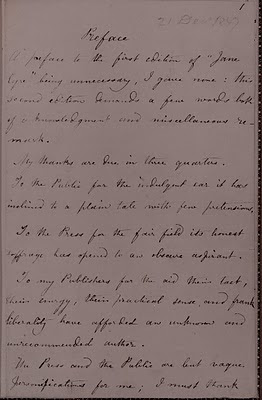 1
21 Dec 1847
Preface
A preface to the first edition of "Jane
Eyre" being unnecessary, I gave none: this
second edition demands a few words both
of acknowledgment and miscellaneous re-
mark.
My thanks are due in three quarters.
To the Public for the indulgent ear it has
inclined to a plain tale with few pretensions.
To the Press for the fair field its honest
suffrage has opened to an obscure aspirant.
To my Publishers for the aid their tact,
their energy, their practical sense, and frank
liberality have afforded an unknown and
unrecommended author.
The Press and the Public are but vague
personifications for me, I must thank